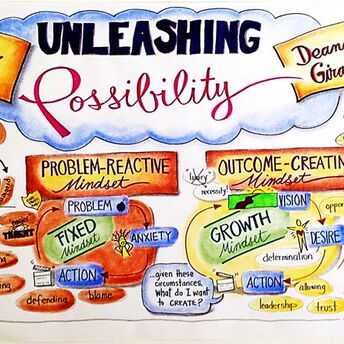 UNLEASHING
Possibility
Deann
Gira
PROBLEM-REACTIVE
Mindset
PROBLEM
FIXED
Mindset
ANXIETY
ACTION
defending
blame
THREAT
OUTCOME-CREATIN
Mindset
necessity!
VISION
oppor
GROWTH
Mindset
DESIRE
determination
ACTION
allowing
leadership
trust
...given these
circumstances,
What do I want
to CREATE?